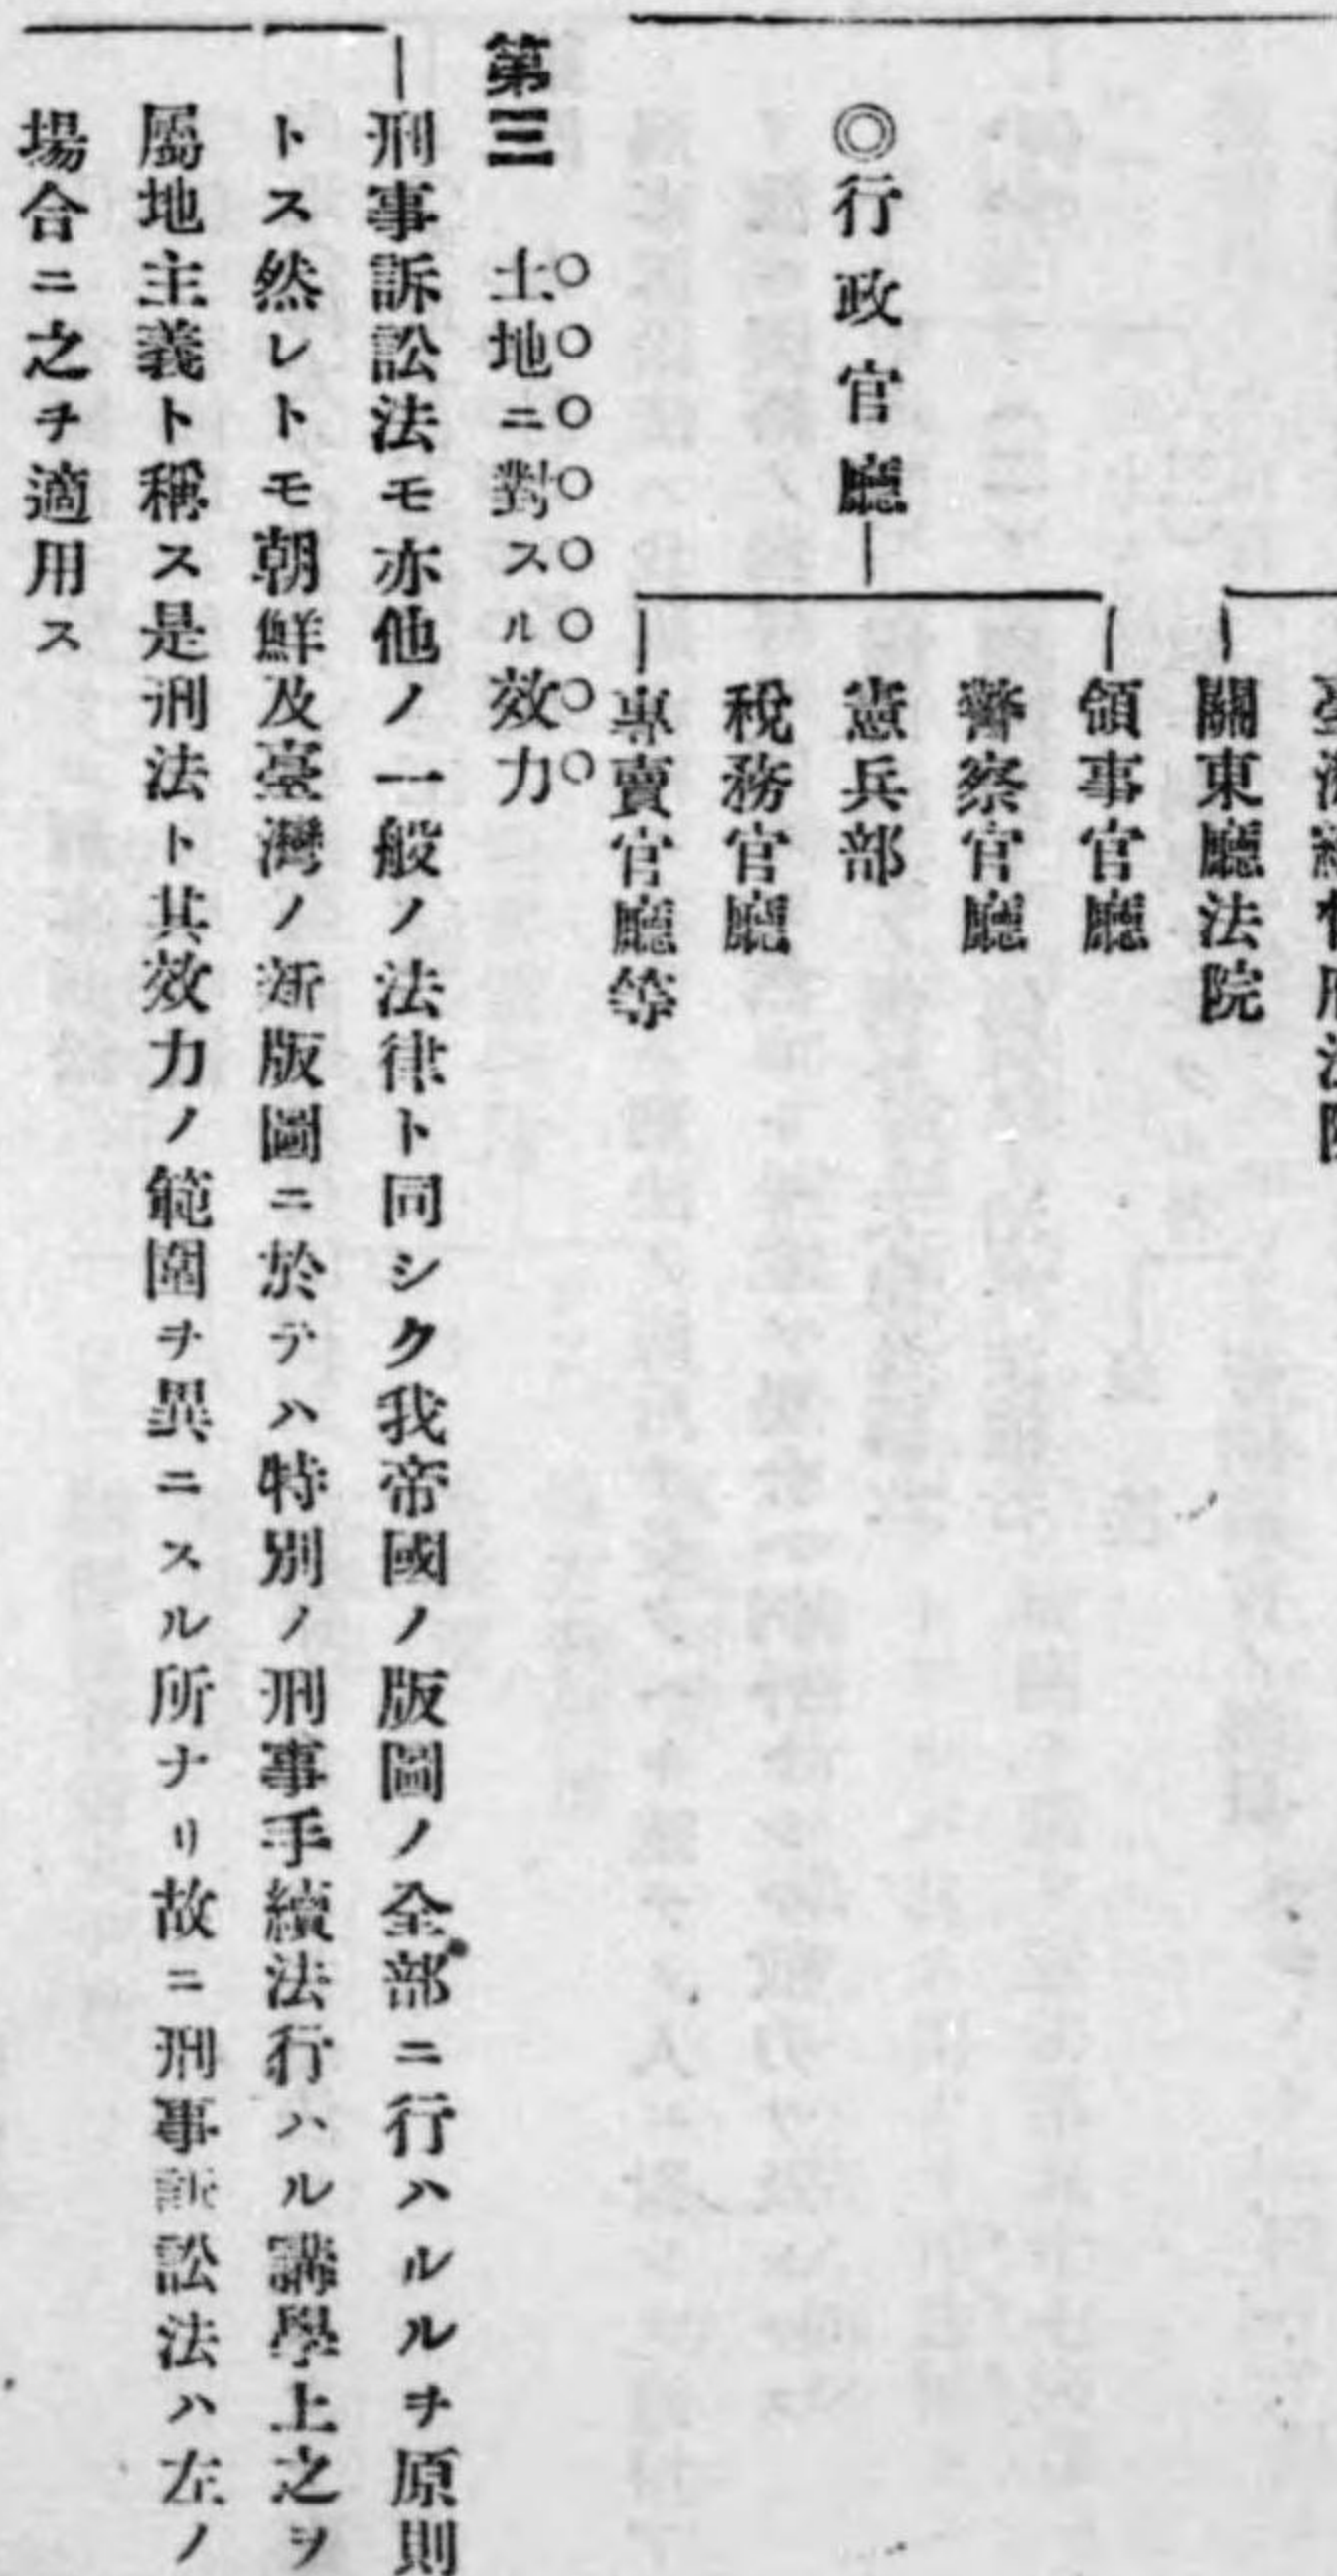 關東廳法院
領事官廳
警察官廳
◎行政官廳
憲兵部
稅務官廳
專賣官廳等
第三 土地ニ對スル效力
刑事訴訟法モ亦他ノ一般ノ法律ト同シク我帝國ノ版圖ノ全部ニ行ハルルヲ原則
トス然レトモ朝鮮及臺灣ノ新版圖ニ於テハ特別ノ刑事手續法行ハル講學上之ヲ
屬地主義ト稱ス是刑法ト其效力ノ範圍ヲ異ニスル所ナリ故ニ刑事訴訟法ハ左ノ
場合ニ之ヲ適用ス